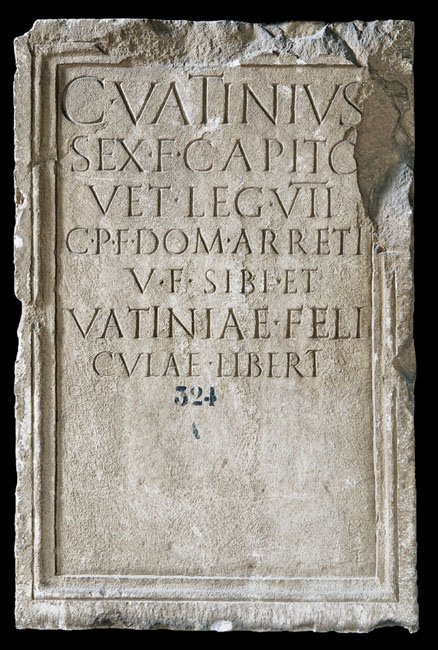 C·VATINIVS
SEX·F·CAPITO
VET·LEG·VII
C·P·F·DOM·ARRETI
V·F·SIBI·ET
VATINIAE·FELI
CVLAE·LIBERT
324